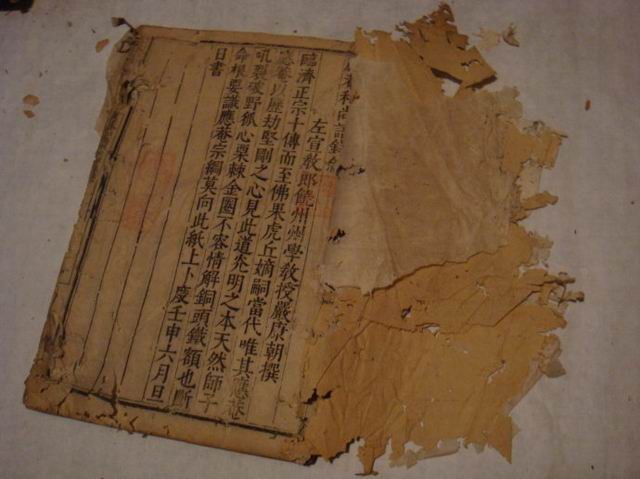 菴和尚語錄
左宣敎郎饒州州學敎授嚴康朝撰
臨濟正宗十傳而至佛果虎丘嫡嗣當代唯其應菴
應菴以歷劫堅剛之心見此道光明之本天然師子
吼裂破野狐心栗棘金圈不容情解銅頭鐵額也斷
命根要識應菴宗綱莫向此紙上卜度壬申六月旦
日書